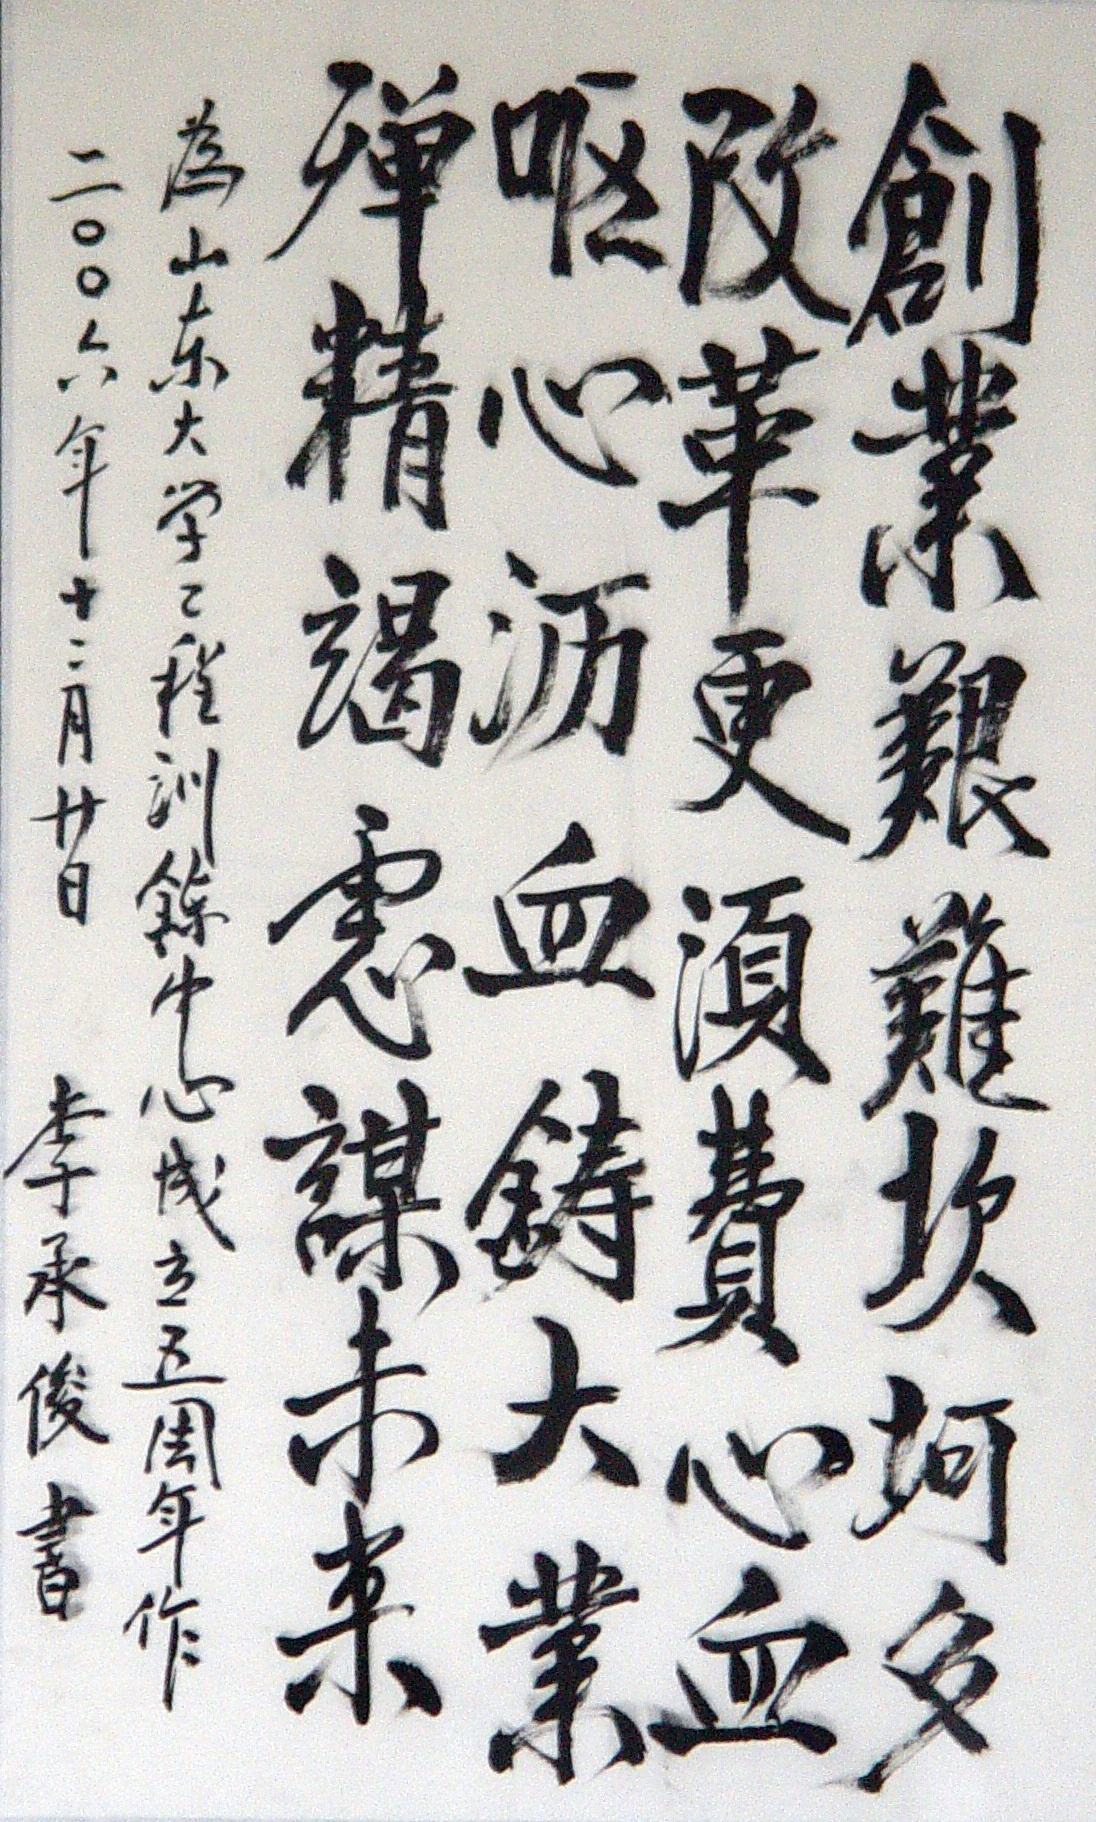 創業艱難坎坷多
改革更須費心血
呕心沥血鋳大業
殫精謁慮謀未来
为山东大学工程训练中心成立五周年作
二〇〇六年十二月廿日 李承俊書